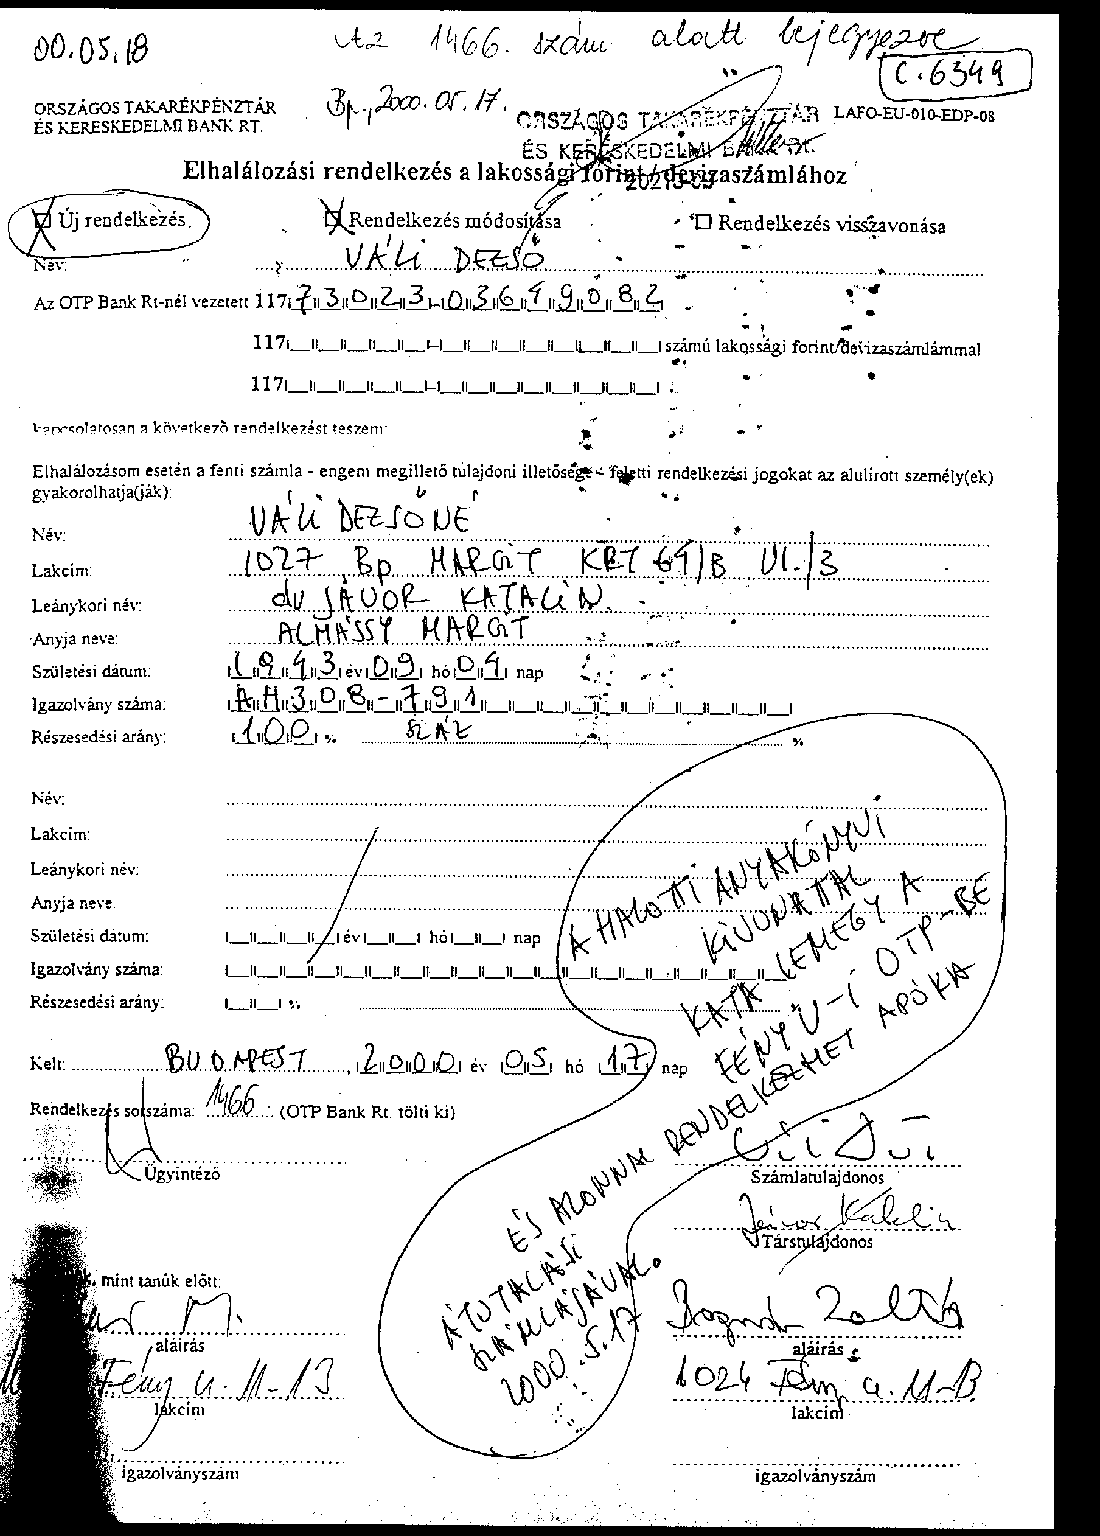 00.05.18
Az 1466. szám alatt bejegyezve
C.6349
ORSZÁGOS TAKARÉKPÉNZTÁR
ÉS KERESKEDELMI BANK RT.
Bp., 2000.05.17.
ORSZÁGOS TAKARÉKPÉNZTÁR
ÉS KERESKEDELMI BANK RT.
LAFO-EU-010-EDP-08
Elhalálozási rendelkezés a lakossági forint/devizaszámlához
Új rendelkezés.
Rendelkezés módosítása
Rendelkezés visszavonása
Név: VÁLI DEZSŐ
Az OTP Bank Rt-nél vezetett 117 73023-03649082
117 számú lakossági forint/devizaszámlámmal
117
kapcsolatosan a következő rendelkezést teszem:
Elhalálozásom esetén a fenti számla - engem megillető tulajdoni illetősége - feletti rendelkezési jogokat az alulírott személy(ek)
gyakorolhatja(ják):
Név: VÁLI DEZSŐNÉ
Lakcím: 1027 Bp MARGIT KRT 64/B VI./3
Leánykori név: dr JÁVOR KATALIN
Anyja neve: ALMÁSSY MARGIT
Születési dátum: 1943 év 09 hó 04 nap
Igazolvány száma: AH308-791
Részesedési arány: 100 % SZÁZ %
Név:
Lakcím:
Leánykori név:
Anyja neve:
Születési dátum: év hó nap
Igazolvány száma:
Részesedési arány: %
A HALOTTI ANYAKÖNYVI
KIVONATTAL
KATA LEMEGY A
FÉNY U-I OTP-BE
ÉS AZONNAL RENDELKEZHET APÓKA
ÁTUTALÁSI
SZÁMLÁJÁVAL.
2000.5.17
Kelt: BUDAPEST, 2000 év 05 hó 17 nap
Rendelkezés sorszáma: 1466 (OTP Bank Rt. tölti ki)
Ügyintéző
Számlatulajdonos
Jávor Katalin
Társtulajdonos
mint tanúk előtt:
Zoltán
aláírás
aláírás
Fény u. 11-13
1024 Fény u. 11-13
lakcím
lakcím
igazolványszám
igazolványszám